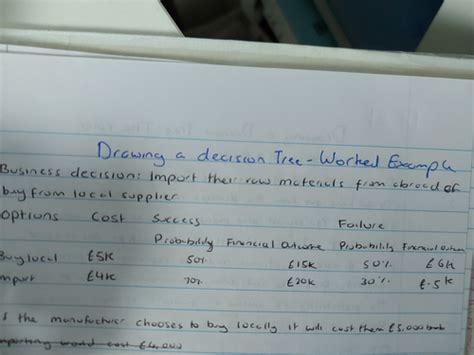 Drawing a decision Tree - Worked Example
Business decision: Import their raw materials from abroad of
buy from local supplier
Options Cost Success Failure
Probability Financial Outcome Probability Financial Outcom
Buy local £5K 50% £15K 50% £6K
mport £4K 70% £20K 30% £-5K
f the manufacturer chooses to buy locally it will cost them £5,000
importing would cost £4,000